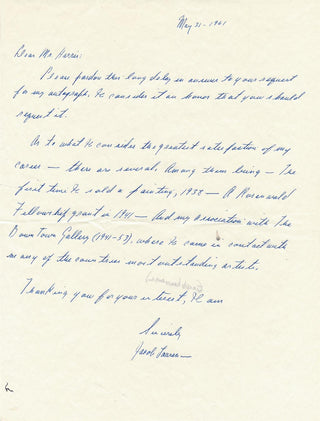 May 31-1961
Dear Mr. Harris:
Please pardon this long delay in answer to your request
for my autograph. I consider it an honor that you should
request it.
As to what I consider the greatest satisfaction of my
career — there are several. Among them being — The
first time I sold a painting, 1938 — A Rosenwald
Fellowship grant in 1941 — And my association with The
DownTown Gallery (1941-53), where I came in contact with
many of the countries most outstanding artists.
Thanking you for your interest, I am
Sincerely
Jacob Lawrence